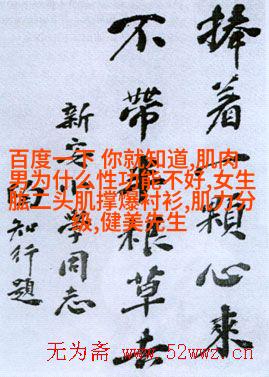 捧着一顆心來
不帶半根草去
新安小學同志
知行題
百度一下 你就知道,肌肉
男为什么性功能不好,女生
肱二头肌撑爆衬衫,肌力分
级,健美先生
无为斋 www.52wwz.cn